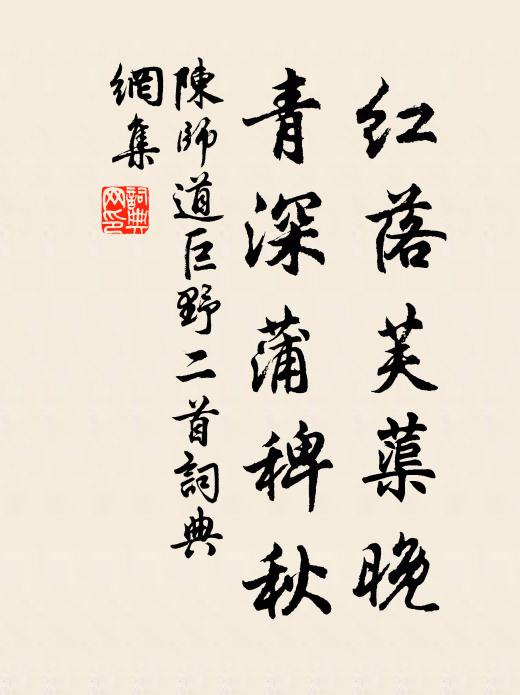 红落芙蕖晚
青深蒲稗秋
陳師道巨野二首詞典
網集
詞典
网印